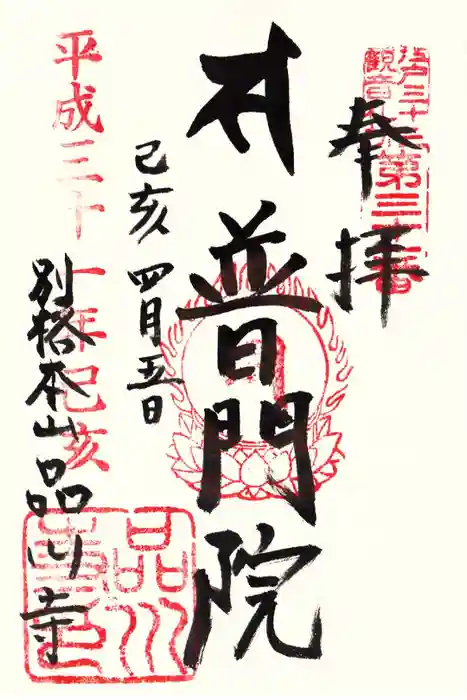 奉拝
江戸三十三
観音札所
第三十一番
普門院
己亥 四月五日
平成三十一年己亥
別格本山品川寺
品川